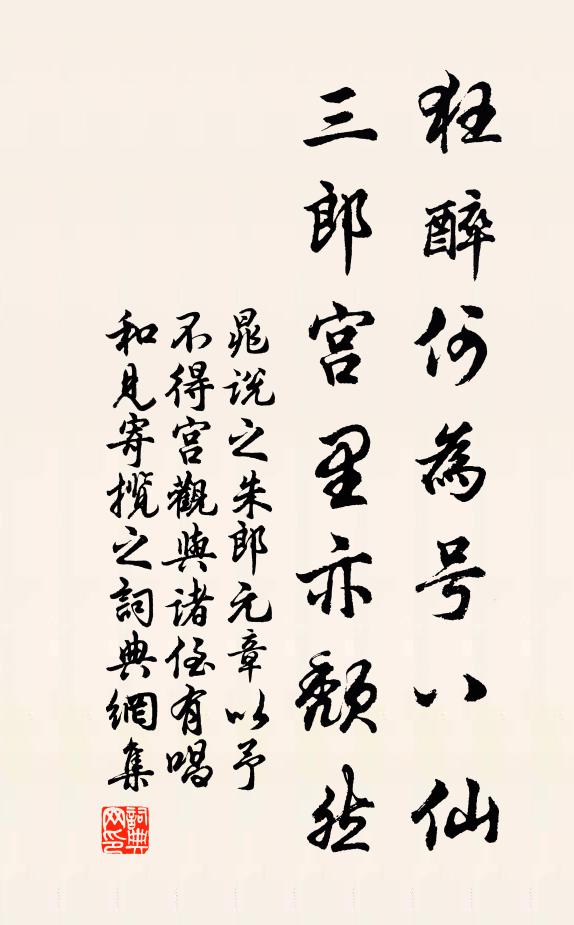 狂醉何為号八仙
三郎宫里亦颓然
晁说之朱郎元章以予
不得宫觀與諸侄有唱
和見寄攬之詞典網集
詞典网印